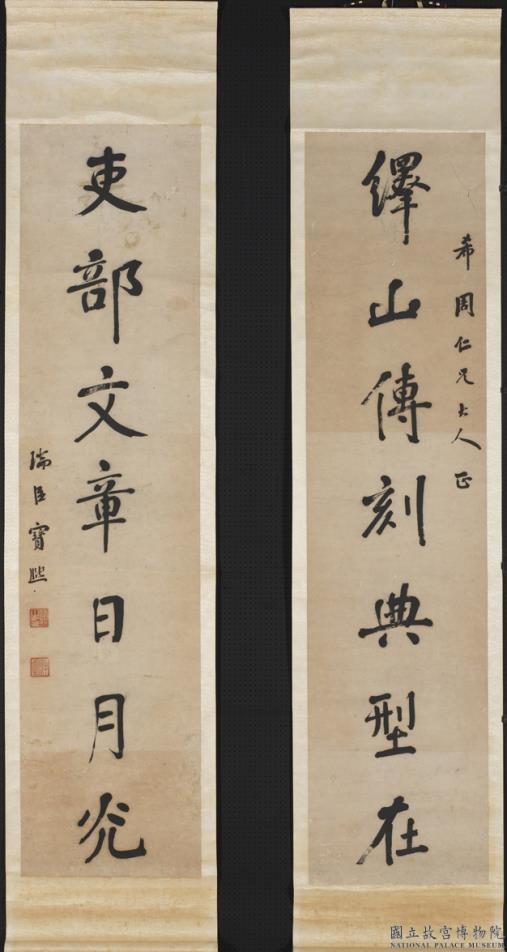 希周仁兄大人正
繹山傳刻典型在
吏部文章日月光
瑞臣寶熙
國立故宮博物院
NATIONAL PALACE MUSEUM